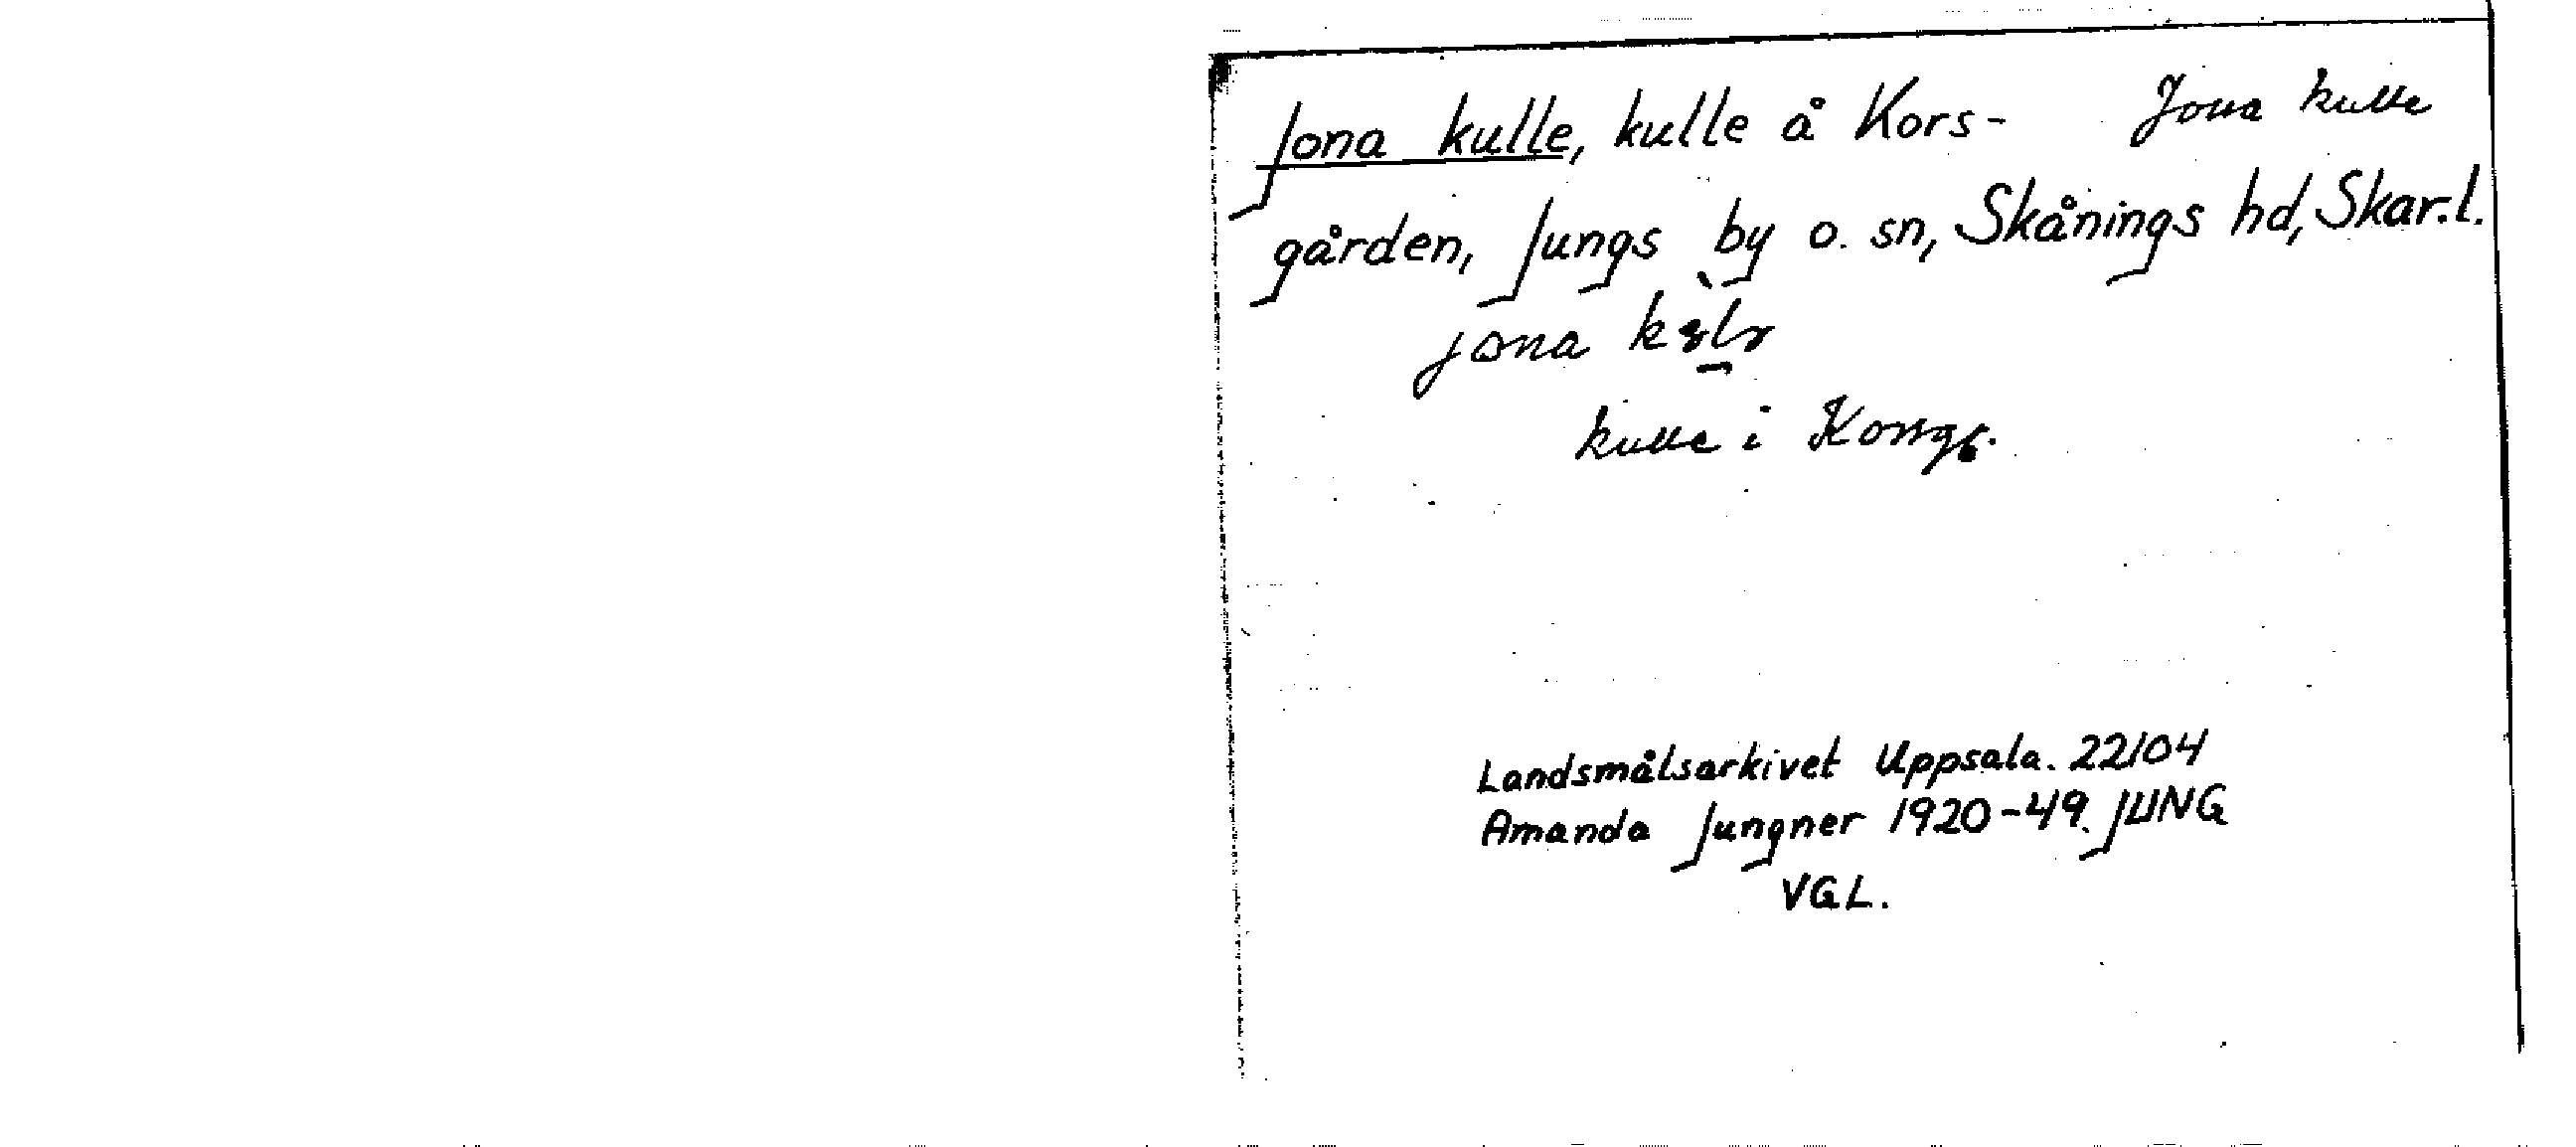 Jona kulle, kulle å Kors- Jona kulle
gården, Jungs by o. sn, Skånings hd, Skar.l.
jona
kulle i Korsg.
Landsmålsarkivet Uppsala. 22104
Amanda Jungner 1920-49. JUNG
VGL.